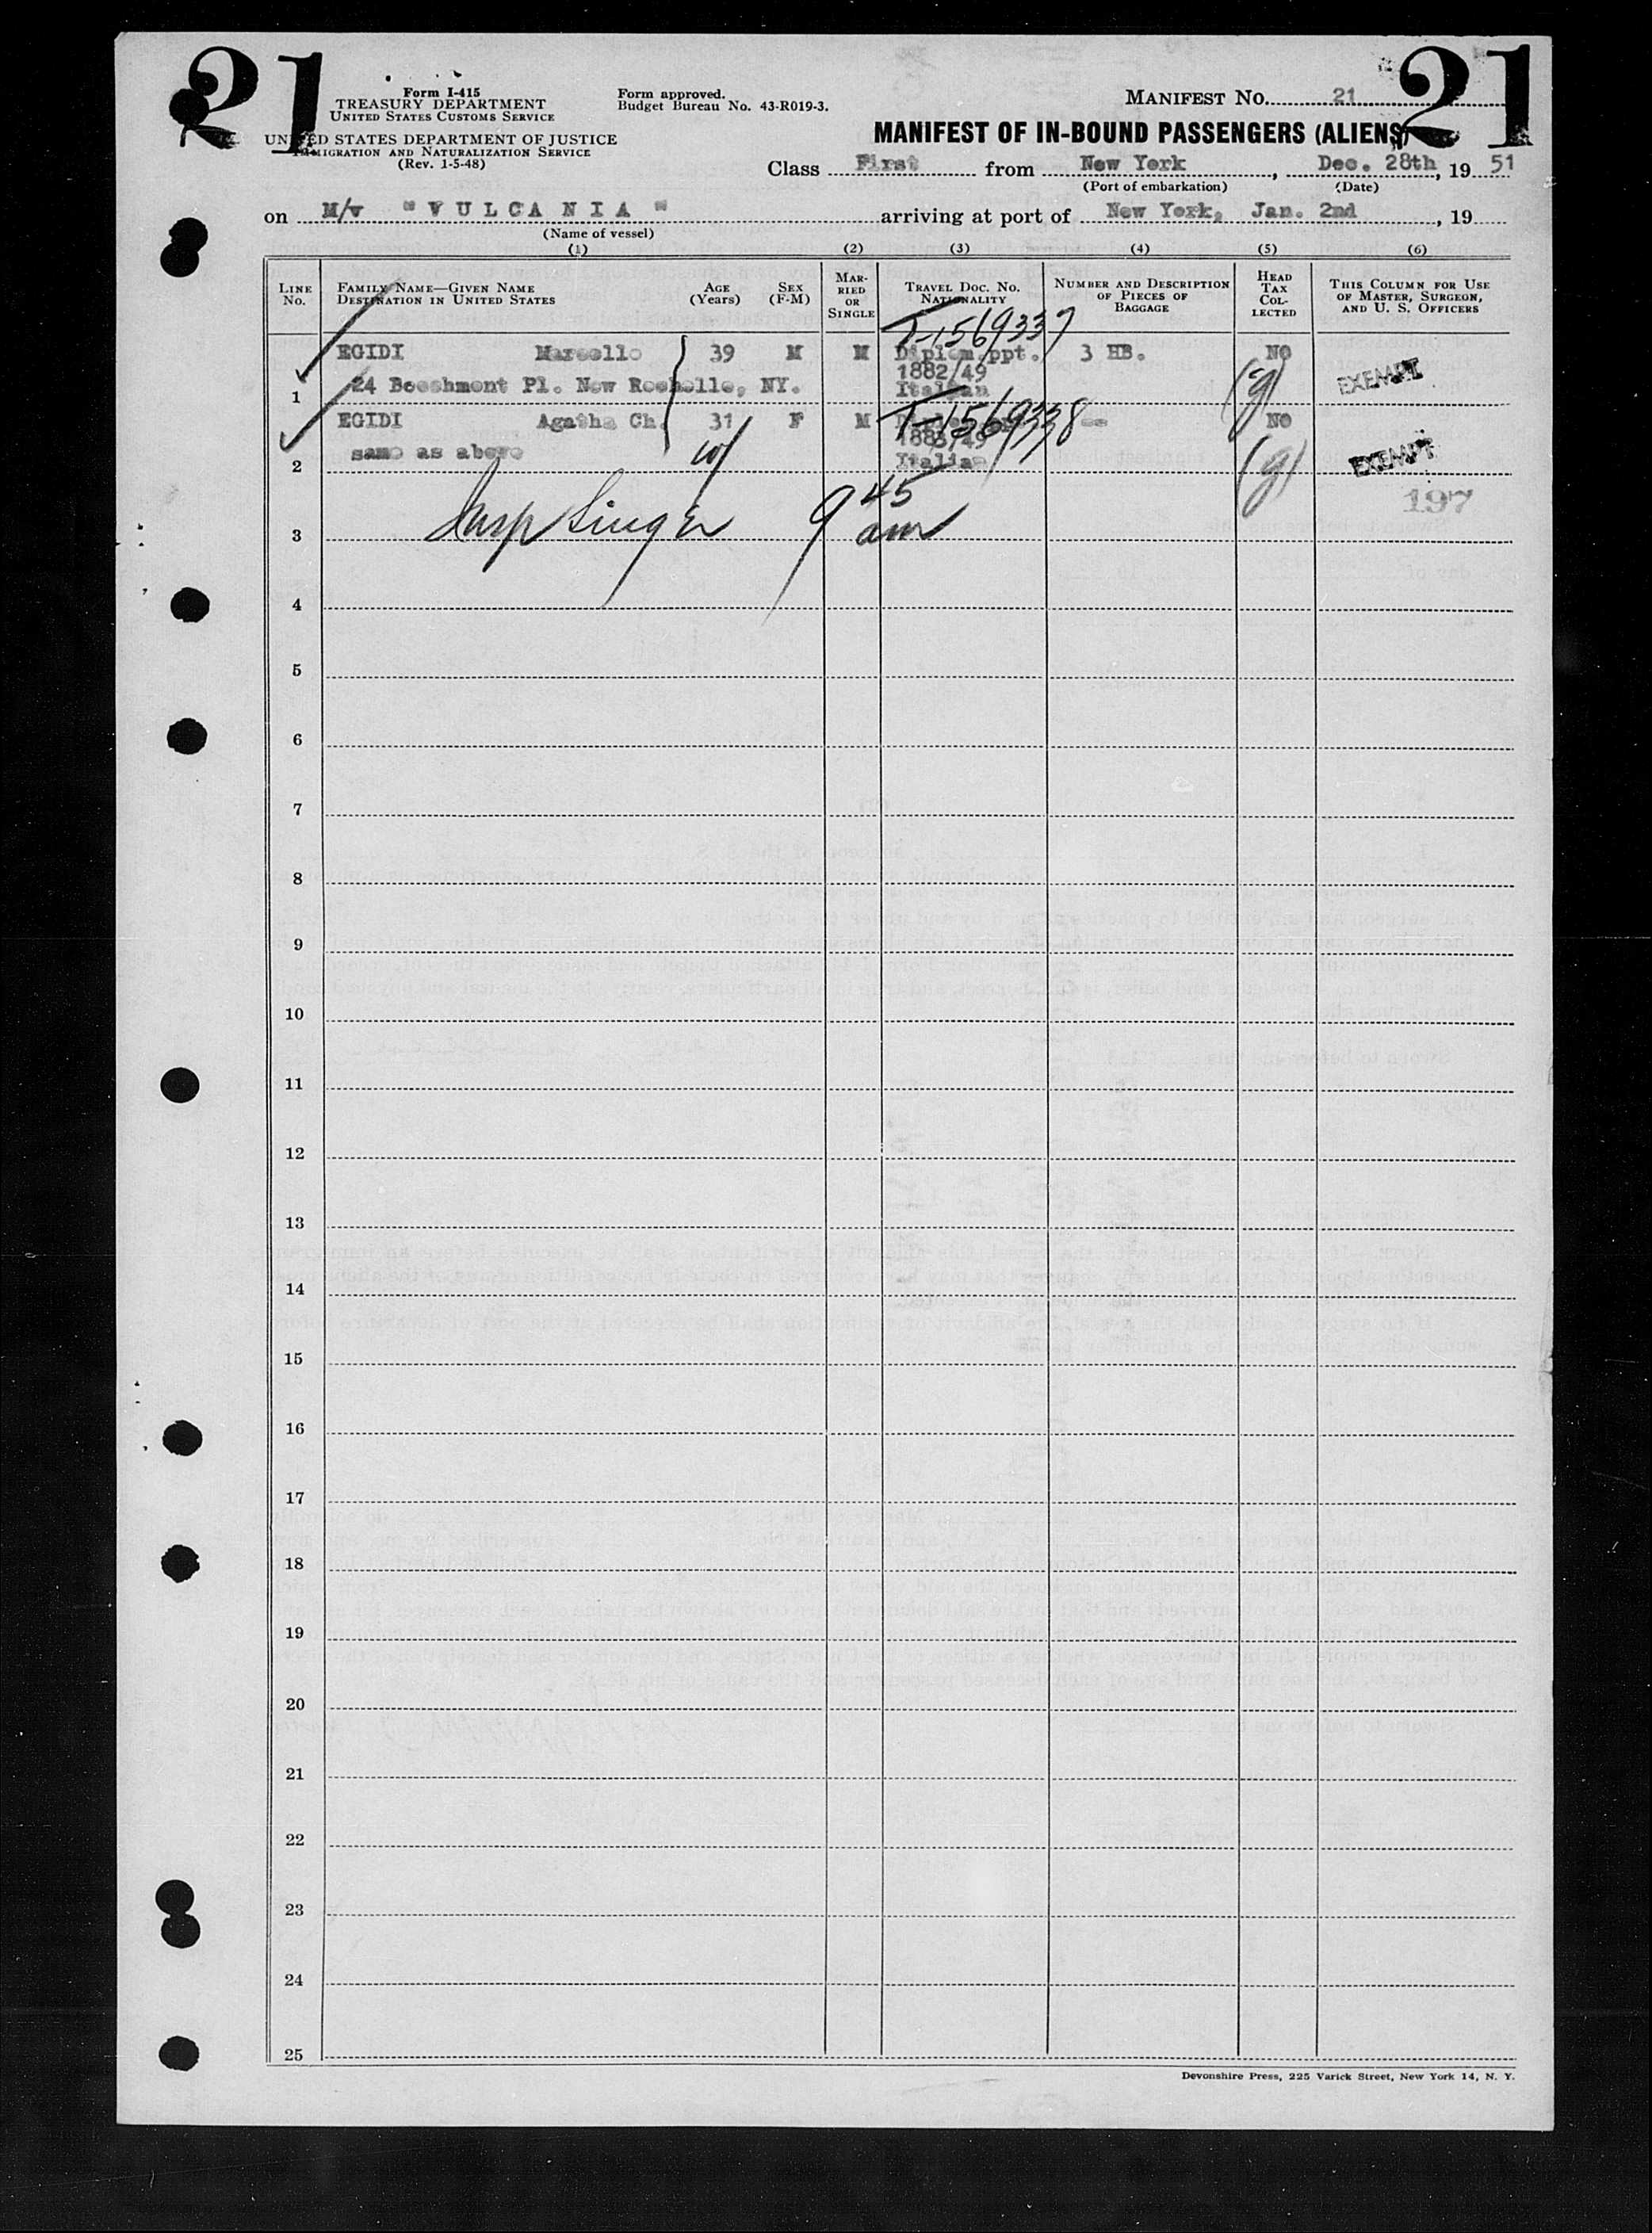 21
21
Form I-415
TREASURY DEPARTMENT
UNITED STATES CUSTOMS SERVICE
UNITED STATES DEPARTMENT OF JUSTICE
IMMIGRATION AND NATURALIZATION SERVICE
(Rev. 1-5-48)
Form approved.
Budget Bureau No. 43-R019-3.
MANIFEST NO. 21
MANIFEST OF IN-BOUND PASSENGERS (ALIENS)
Class First from New York, Dec. 28th, 19 51
(Port of embarkation) (Date)
on M/v "VULCANIA" arriving at port of New York, Jan. 2nd, 19
(Name of vessel)
(1) (2) (3) (4) (5) (6)
LINE No.
FAMILY NAME—GIVEN NAME
DESTINATION IN UNITED STATES
AGE (Years)
SEX (F-M)
MARRIED OR SINGLE
TRAVEL DOC. NO.
NATIONALITY
NUMBER AND DESCRIPTION OF PIECES OF BAGGAGE
HEAD TAX COLLECTED
THIS COLUMN FOR USE OF MASTER, SURGEON, AND U. S. OFFICERS
T-1569337
EGIDI Marcello 39 M M Diplom.ppt. 3 HB. NO
1882/49
1 24 Beechmont Pl. New Rochelle, NY. Italian (g) EXEMPT
T-1569338
EGIDI Agatha Ch. 31 F M -- NO
1883/49
2 same as above w/ Italian (g) EXEMPT
197
3 Insp Singer 9 45 am
4
5
6
7
8
9
10
11
12
13
14
15
16
17
18
19
20
21
22
23
24
25
Devonshire Press, 225 Varick Street, New York 14, N. Y.